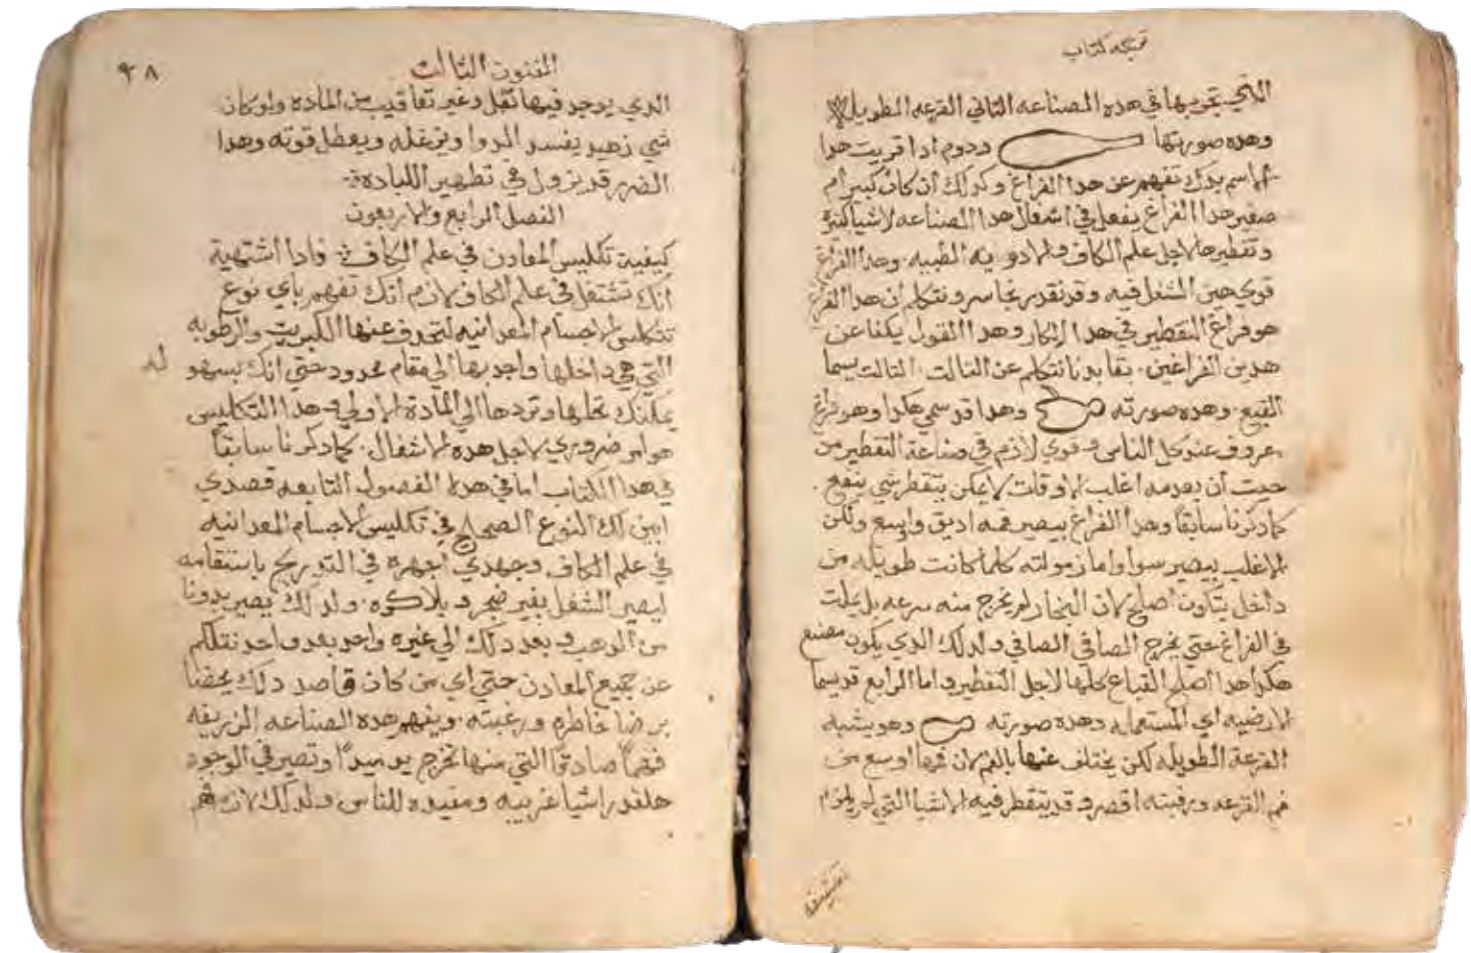 كتاب
التي تجربها في هده الصناعه التاني القرعه الطويله
وهده صورتها ودوم ادا قريت هدا
الاسم بدك تفهم عن هدا الفراغ وكدلك ان كان كبير ام
صغير هدا الفراغ يفعل في اشغال هدا الصناعه لاشيا كتيره
وتقطيرها لاجل علم الكاف والادويه الطبيه وهدا الفراغ
قوي حين الشغل فيه وقد نقدر نتجاسر ونتكلم ان هدا الفراغ
هو فراغ التقطير في هدا الكار وهدا القول يكفا عن
هدين الفراغين بقا بدنا نتكلم عن التالت التالت يسما
القبع وهده صورته وهدا قد سمي هكدا وهو فراغ
معروف عند كل الناس وقوي لازم في صناعة التقطير من
حيت ان بعدمه اغلب الاوقات لا يمكن يتقطر شي ينفع
كما دكرنا سابقا وهدا الفراغ بيصير فمه اديق واوسع ولكن
الاغلب بيصير سوا واما زمولته كلما كانت طويله من
داخل يتكون اصلح لان البخار لم يخرج منه سرعه بل يلت
في الفراغ حتي يخرج الصافي الصافي ولدلك الدي يكون مصنع
هكدا هدا اصلح القباع كلها لاجل التقطير واما الرابع قديسما
الارضيه اي المستعمله وهده صورته وهو يشبه
القرعة الطويله لكن يختلف عنها بالفم لان فمها اوسع من
فم القرعه ورقبته اقصر وقد يتقطر فيه الاشيا التي لم يلزم
الفنون التالت
٩٨
الدي يوجد فيها تقل وغير تعاقيب من الماده ولو كان
شي زهيد يفسد الدوا ويزغله ويعطل قوته وهدا
الضرر قد يزول في تطهير اللباده
الفصل الرابع والاربعون
كيفية تكليس المعادن في علم الكاف فادا اشتهية
انك تشتغل في علم الكاف لازم انك تفهم باي نوع
تتكلس الاجسام المعدانيه لتحدف عنها الكبريت والرطوبه
التي هي داخلها واجدبها الي مقام محدود حتي انك بسهو
له
يمكنك تحلها وتردها الي المادة الاولي وهدا التكليس
هو امر ضروري لاجل هده الاشغال كما دكرنا سابقا
في هدا الكتاب اما في هده الفصول التابعه قصدي
ابين لك النوع الصحيح في تكليس الاجسام المعدانيه
في علم الكاف وجهدي اجهره في التدريج باستقامه
ليصير الشغل بغير ضجر وبلا كره ولدلك يصير بدونا
من الدهب وبعد دلك الي غيره واحد بعد واحد نتكلم
عن جميع المعادن حتي اي من كان قاصد دلك يحضا
برضا خاطره ورغبته ويفهم هده الصناعه الزريفه
فهما صادقا التي منها تخرج يوميدا وتصير في الوجود
هلقدر اشيا غريبه ومفيده للناس ولدلك لان هم